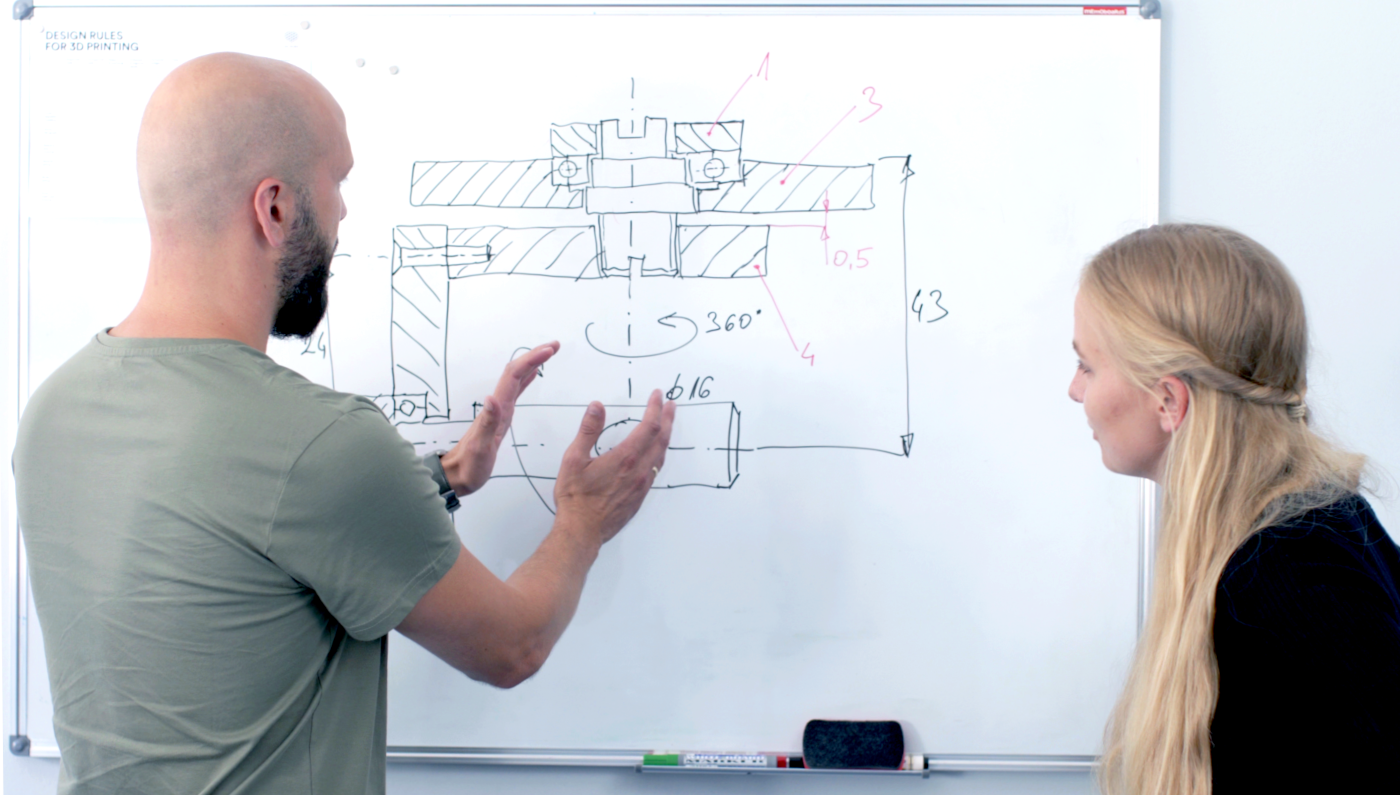 DESIGN RULES
FOR 3D PRINTING
1
3
0,5
43
360°
4
24
ϕ16